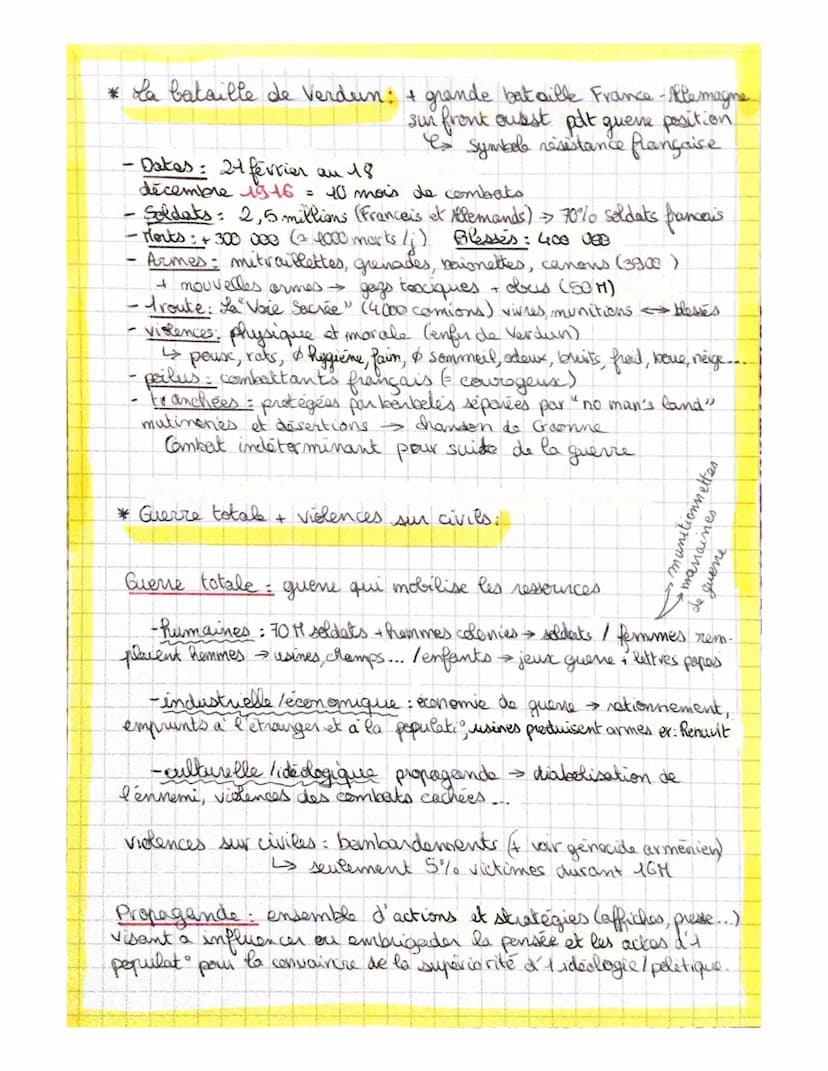 * La bataille de Verdun : + grande bataille France - Allemagne
sur front ouest pdt guerre position
↳ Symbole résistance française
- Dates : 21 février au 18
décembre 1916 = 10 mois de combats
- Soldats : 2,5 millions (Français et Allemands) → 70% soldats français
- Morts : + 300 000 (≈ 1000 morts / j) Blessés : 400 000
- Armes : mitraillettes, grenades, baionettes, canons (3900)
+ nouvelles armes → gags toxciques + obus (50 M)
- 1 route : La "Voie Sacrée" (4000 camions) vivres, munitions ↔ blessés
- violences : physique et morale (enfer de Verdun)
↳ peux, rats, Ø hygiène, faim, Ø sommeil, odeux, bruits, froid, boue, neige...
- poilus : combattants français (= courageux)
- tranchées : protégées par barbelés séparées par "no man's land"
mutineries et désertions → chanson de Craonne
Combat indéterminant pour suite de la guerre
* Guerre totale + violences sur civils :
Guerre totale : guerre qui mobilise les ressources
→ munitionnettes
→ marraines
de guerre
- humaines : 70 M soldats + hommes colonies → soldats / femmes rem-
placent hommes → usines, champs... / enfants → jeux guerre + lettres papas
- industrielle / économique : économie de guerre → rationnement,
emprunts à l'étranger et à la populat°, usines produisent armes ex : Renault
- culturelle / idéologique propagande → diabolisation de
l'énnemi, violences des combats cachées...
violences sur civiles : bombardements (+ voir génocide arménien)
↳ seulement 5% victimes durant 1GM
Propagande : ensemble d'actions et stratégies (affiches, presse...)
visant à influencer ou embrigader la pensée et les actes d'1
populat° pour la convaincre de la supériorité d'1 idéologie / politique.